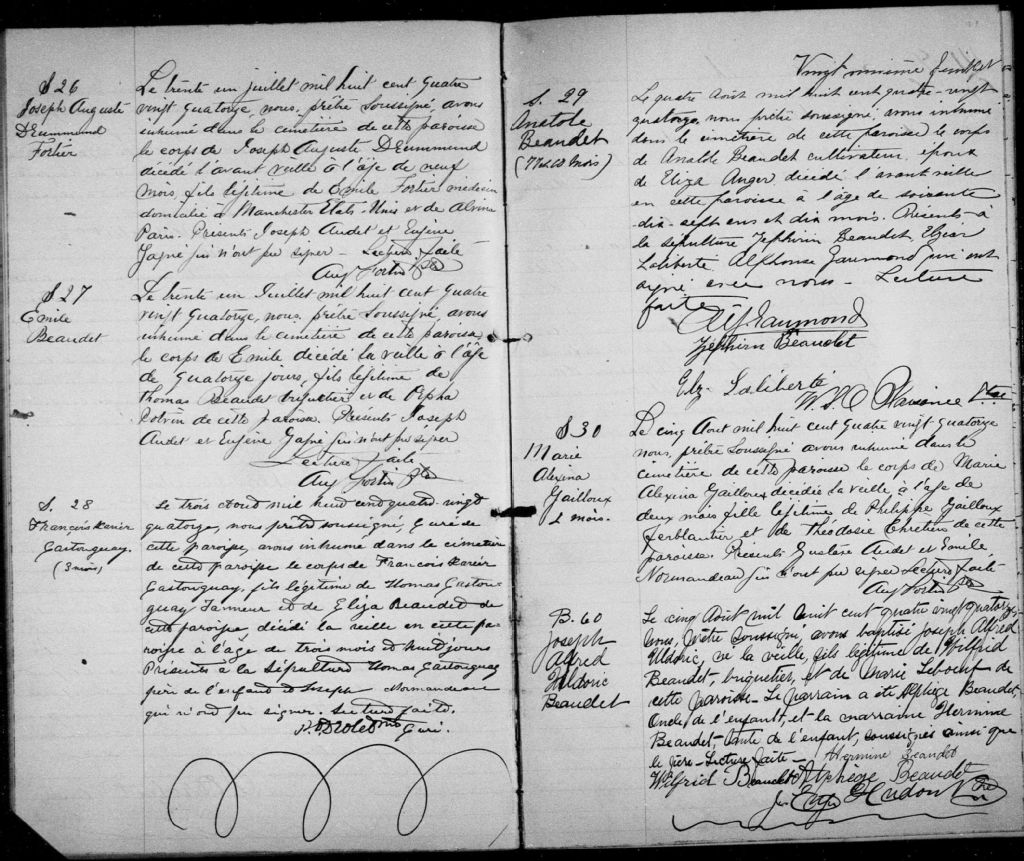 S 26
Joseph Auguste
Drummund
Fortier
Le trente un juillet mil huit cent quatre
vingt quatorze, nous, prêtre Soussigné, avons
inhumé dans le cimetière de cette paroisse
le corps de Joseph Auguste Drummund
décédé l'avant veille à l'âge de neuf
mois, fils légitime de Emile Fortier médecin
domicilié à Manchester Etats-Unis et de Alvina
Paris. Présents Joseph Audet et Eugène
Gagné qui n'ont pu signer - Lecture faite
Aug Fortin Ptre
S 27
Emile
Beaudet
Le trente un Juillet mil huit cent quatre
vingt quatorze, nous, prêtre Soussigné, avons
inhumé dans le cimetière de cette paroisse
le corps de Emile décédé la veille à l'âge
de quatorze jours, fils légitime de
Thomas Beaudet briquetier et de
Potvin de cette paroisse. Présents Joseph
Audet et Eugène Gagné qui n'ont pu signer
Lecture faite
Aug Fortin Ptre
S. 28
François Xavier
Gastonguay.
(3 mois)
Le trois août mil huit cent quatre vingt
quatorze, nous prêtre soussigné, Curé de
cette paroisse, avons inhumé dans le cimetière
de cette paroisse le corps de François Xavier
Gastonguay, fils légitime de Thomas Gaston-
guay Tanneur et de Eliza Beaudet de
cette paroisse décédé la veille en cette pa-
roisse à l'âge de trois mois et huit jours
Présents à la sépulture Thomas Gastonguay
père de l'enfant et Joseph Normandeau
qui n'ont pu signer. Lecture faite.
Drolet Ptre Curé.
Vingt unième feuillet
S. 29
Anatole
Beaudet
(77 ans 10 mois)
Le quatre Août mil huit cent quatre-vingt
quatorze, nous prêtre soussigné, avons inhumé
dans le cimetière de cette paroisse le corps
de Anatole Beaudet cultivateur, époux
de Eliza Auger décédé l'avant veille
en cette paroisse à l'âge de soixante
dix-sept ans et dix mois. Présents à
la sépulture Zéphirin Beaudet, Elzéar
Laliberté Alphonse Jaumond qui ont
signé avec nous - Lecture
faite
Zéphirin Beaudet
Elz. Laliberté
Plaisance Ptre
S 30
Marie
Alexina
Gailloux
2 mois.
Le cinq Aout mil huit cent quatre vingt quatorze
nous, prêtre Soussigné avons inhumé dans le
cimetière de cette paroisse le corps de Marie
Alexina Gailloux décédée la veille à l'âge de
deux mois fille légitime de Philippe Gailloux
ferblantier et de Théodosie Chretien de cette
paroisse. Présents Gustave Audet et Emile
Normandeau qui n'ont pu signer Lecture faite
Aug Fortin Ptre
B. 60
Joseph
Alfred
Uldoric
Beaudet
Le cinq Août mil huit cent quatre vingt quatorze,
nous, Prêtre soussigné, avons baptisé Joseph Alfred
Uldoric, né la veille, fils légitime de Wilfrid
Beaudet, briquetier, et de Marie Leboeuf de
cette paroisse - Le parrain a été Alphège Beaudet
Oncle de l'enfant, et la marraine Hermine
Beaudet, tante de l'enfant, soussignés ainsi que
le père - Lecture faite - Hermine Beaudet
Wilfrid Beaudet Alphège Beaudet
Hudon Ptre